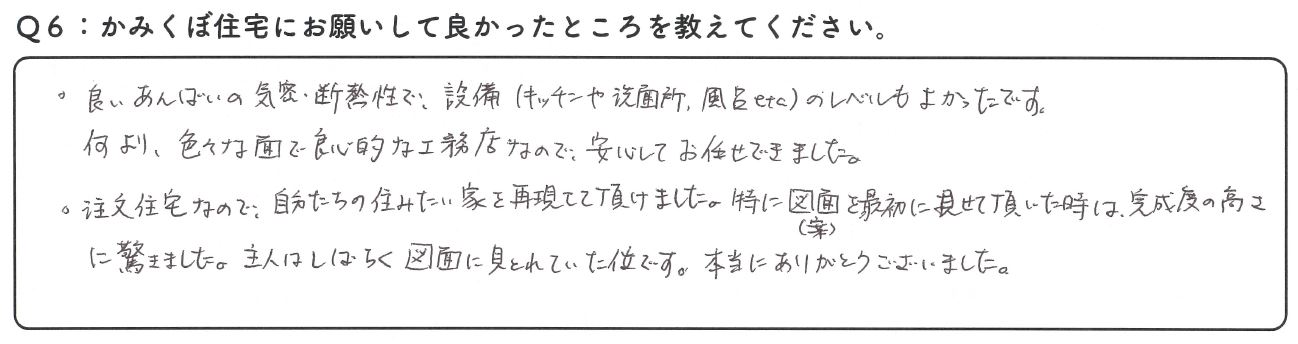 Q6：かみくぼ住宅にお願いして良かったところを教えてください。
。良いあんばいの気密・断熱性で、設備(キッチンや洗面所、風呂etc)のレベルもよかったです。
何より、色々な面で良心的な工務店なので、安心してお任せできました。
。注文住宅なので、自分たちの住みたい家を再現して頂けました。特に図面を最初に見せて頂いた時は、完成度の高さ
(案)
に驚きました。主人はしばらく図面に見とれていた位です。本当にありがとうございました。